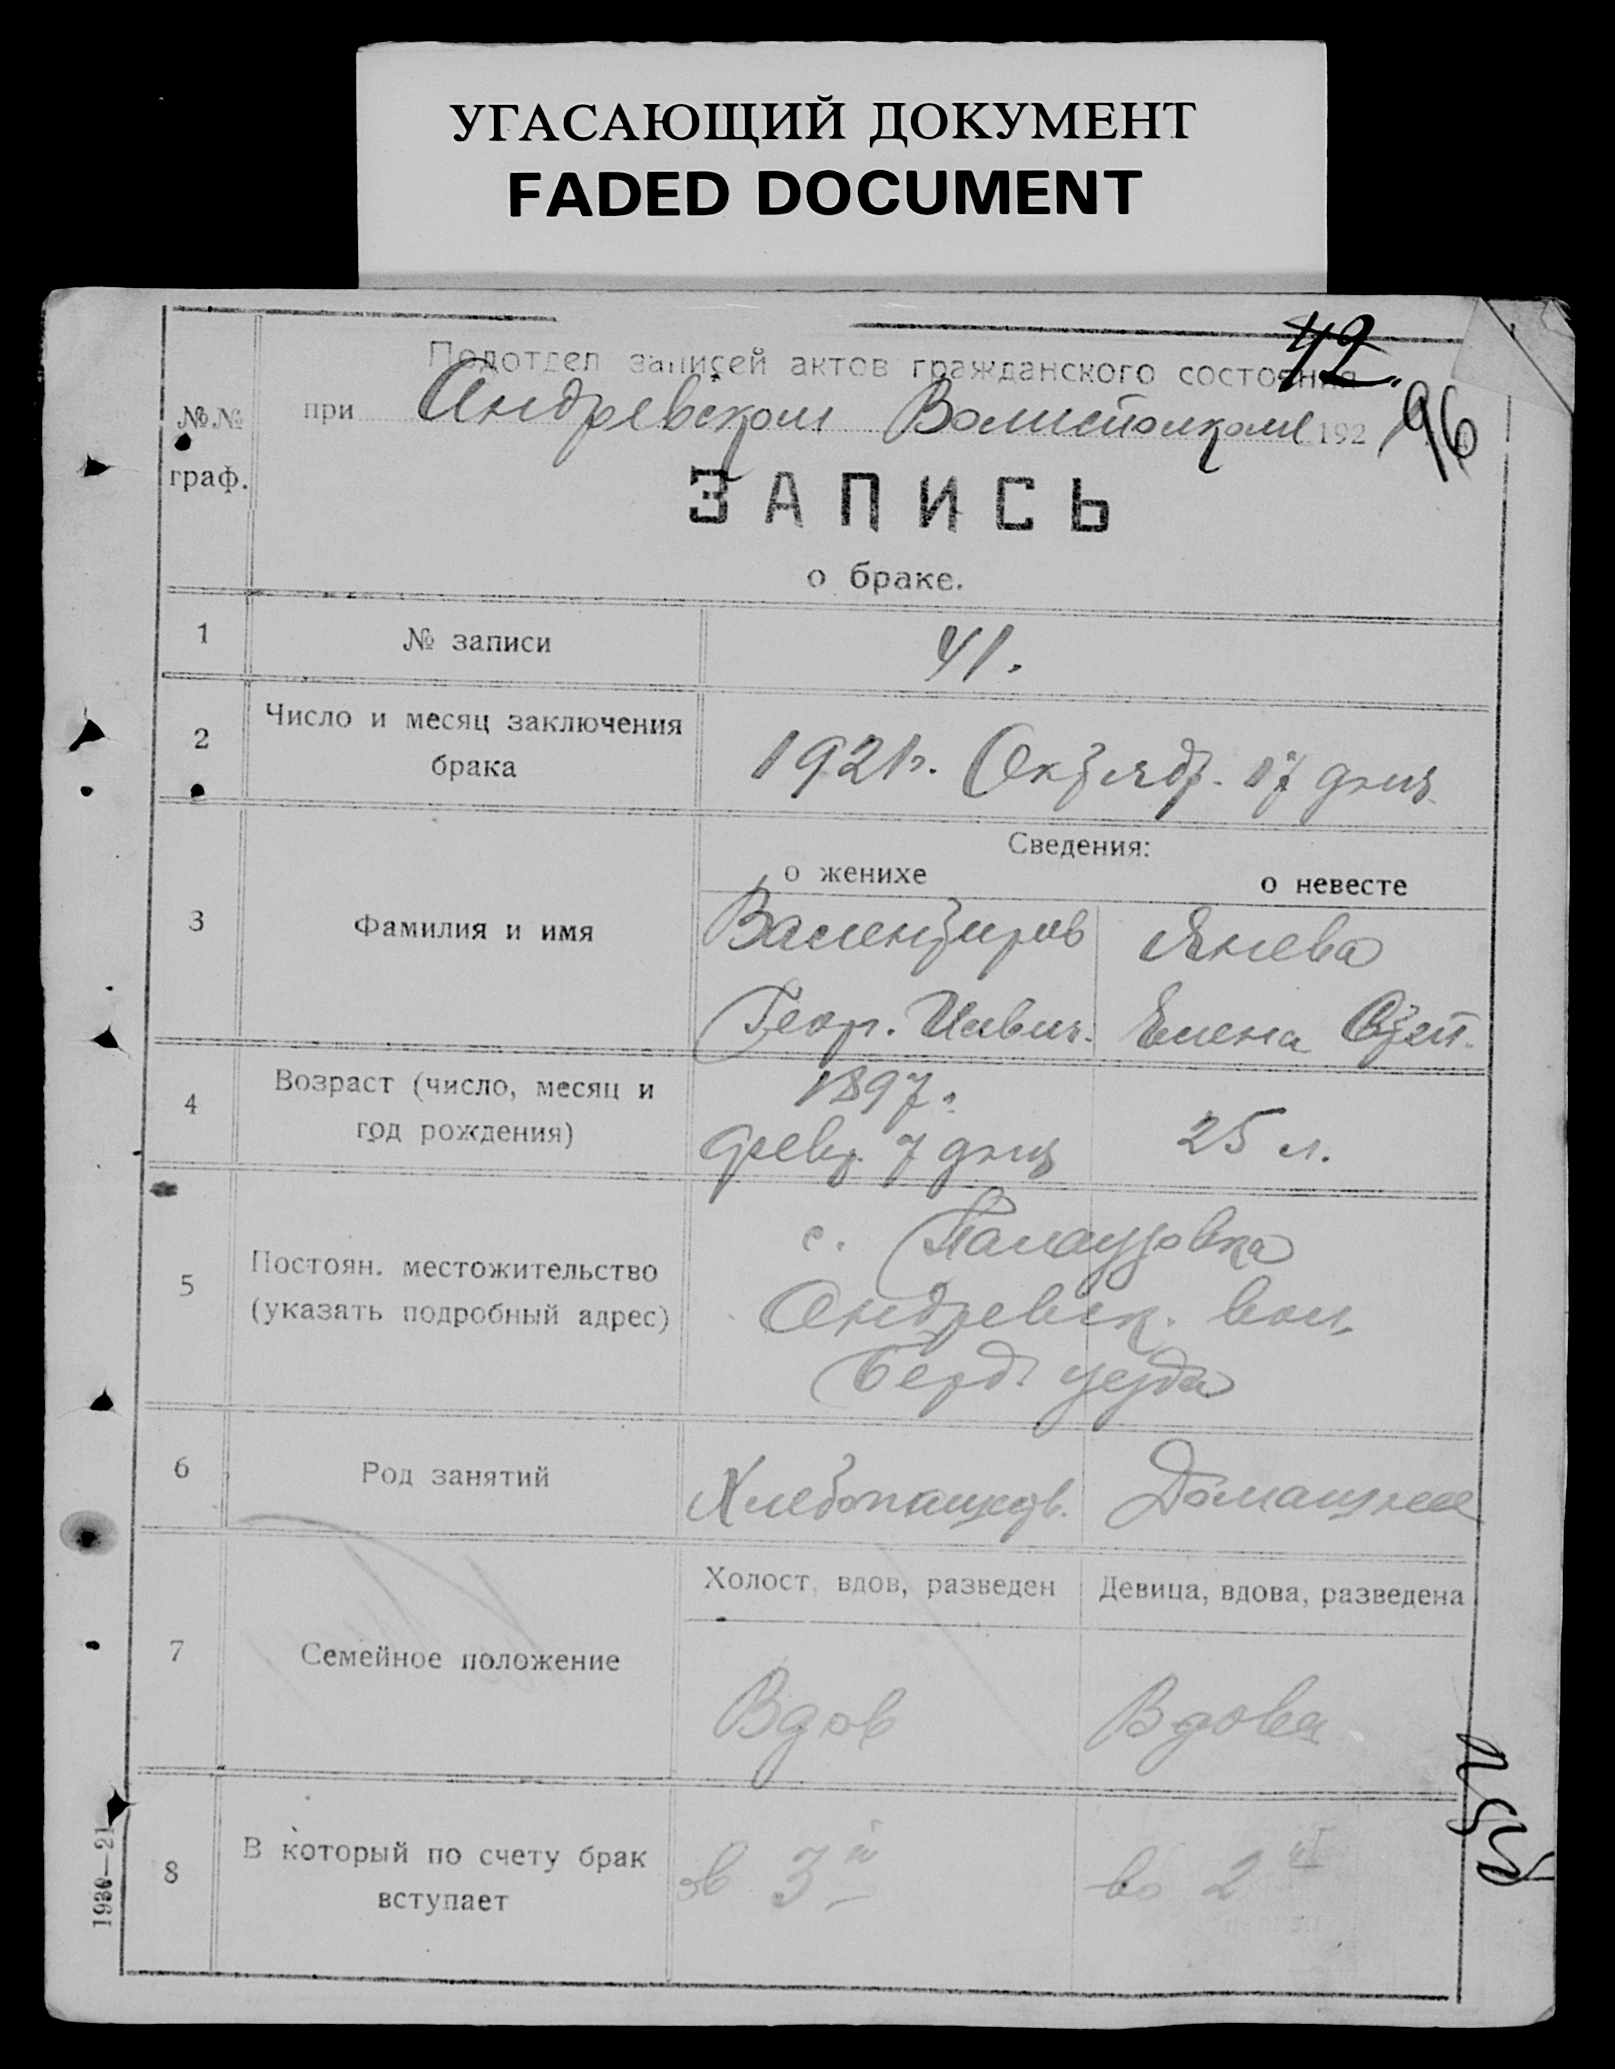 УГАСАЮЩИЙ ДОКУМЕНТ
FADED DOCUMENT
42.
Подотдел записей актов гражданского состояния
при Андревском Волисполкоме 192
96
№№ граф.
ЗАПИСЬ
о браке.
1 № записи 41.
2 Число и месяц заключения брака 1921г. Октядр. 17 дня
Сведения:
о женихе о невесте
3 Фамилия и имя
Янева
Геор. Елена Степ.
4 Возраст (число, месяц и год рождения)
1897г.
февр. 7 дня 25 л.
5 Постоян. местожительство (указать подробный адрес)
с. Палаузовка
Андревск. вол.
Берд. уезда
6 Род занятий
Домашнее
Холост, вдов, разведен Девица, вдова, разведена
7 Семейное положение
Вдов Вдова
8 В который по счету брак вступает
в 3й во 2й
1930—21